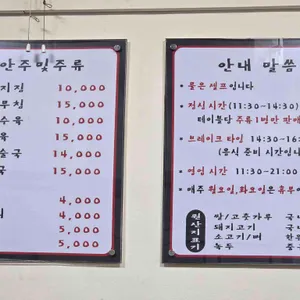 안주및주류
지짐 10,000
무침 15,000
수육 15,000
육 15,000
술국 14,000
국 15,000
4,000
4,000
5,000
5,000
안내 말씀
• 물은 셀프입니다
• 점심 시간(11:30-14:30)
테이블당 주류 1병만 판매
• 브레이크 타임 14:30-16:
(음식 준비 시간입니
• 영업 시간 11:30-21:00
• 매주 월요일,화요일은 휴무
원산지표기
쌀/고춧가루 국
돼지고기 국내
소고기/뼈 한
녹두 중